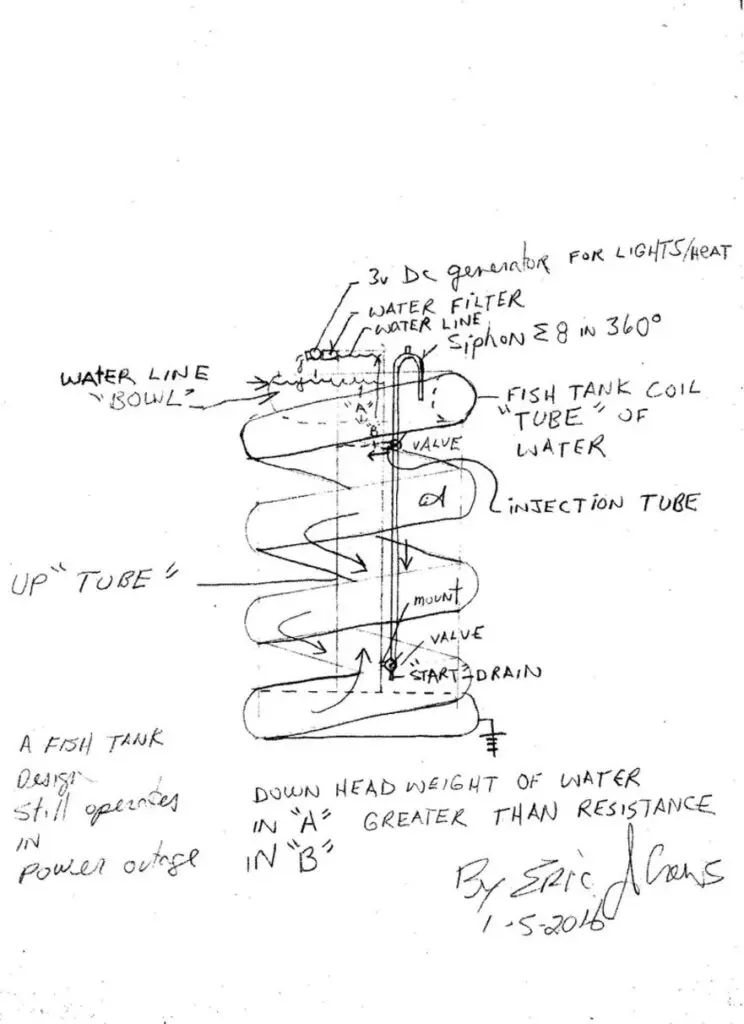 3v DC generator FOR LIGHTS/HEAT
WATER FILTER
WATER LINE
SiphoN Σ 8 IN 360°
WATER LINE
"BOWL"
"A"
B
FISH TANK COIL
"TUBE" OF
WATER
VALVE
INJECTION TUBE
UP "TUBE"
MOUNT
VALVE
"START" DRAIN
A FISH TANK
Design
Still operates
IN
Power outage
DOWN HEAD WEIGHT OF WATER
IN "A" GREATER THAN RESISTANCE
IN "B"
By ERIC
1-5-2016